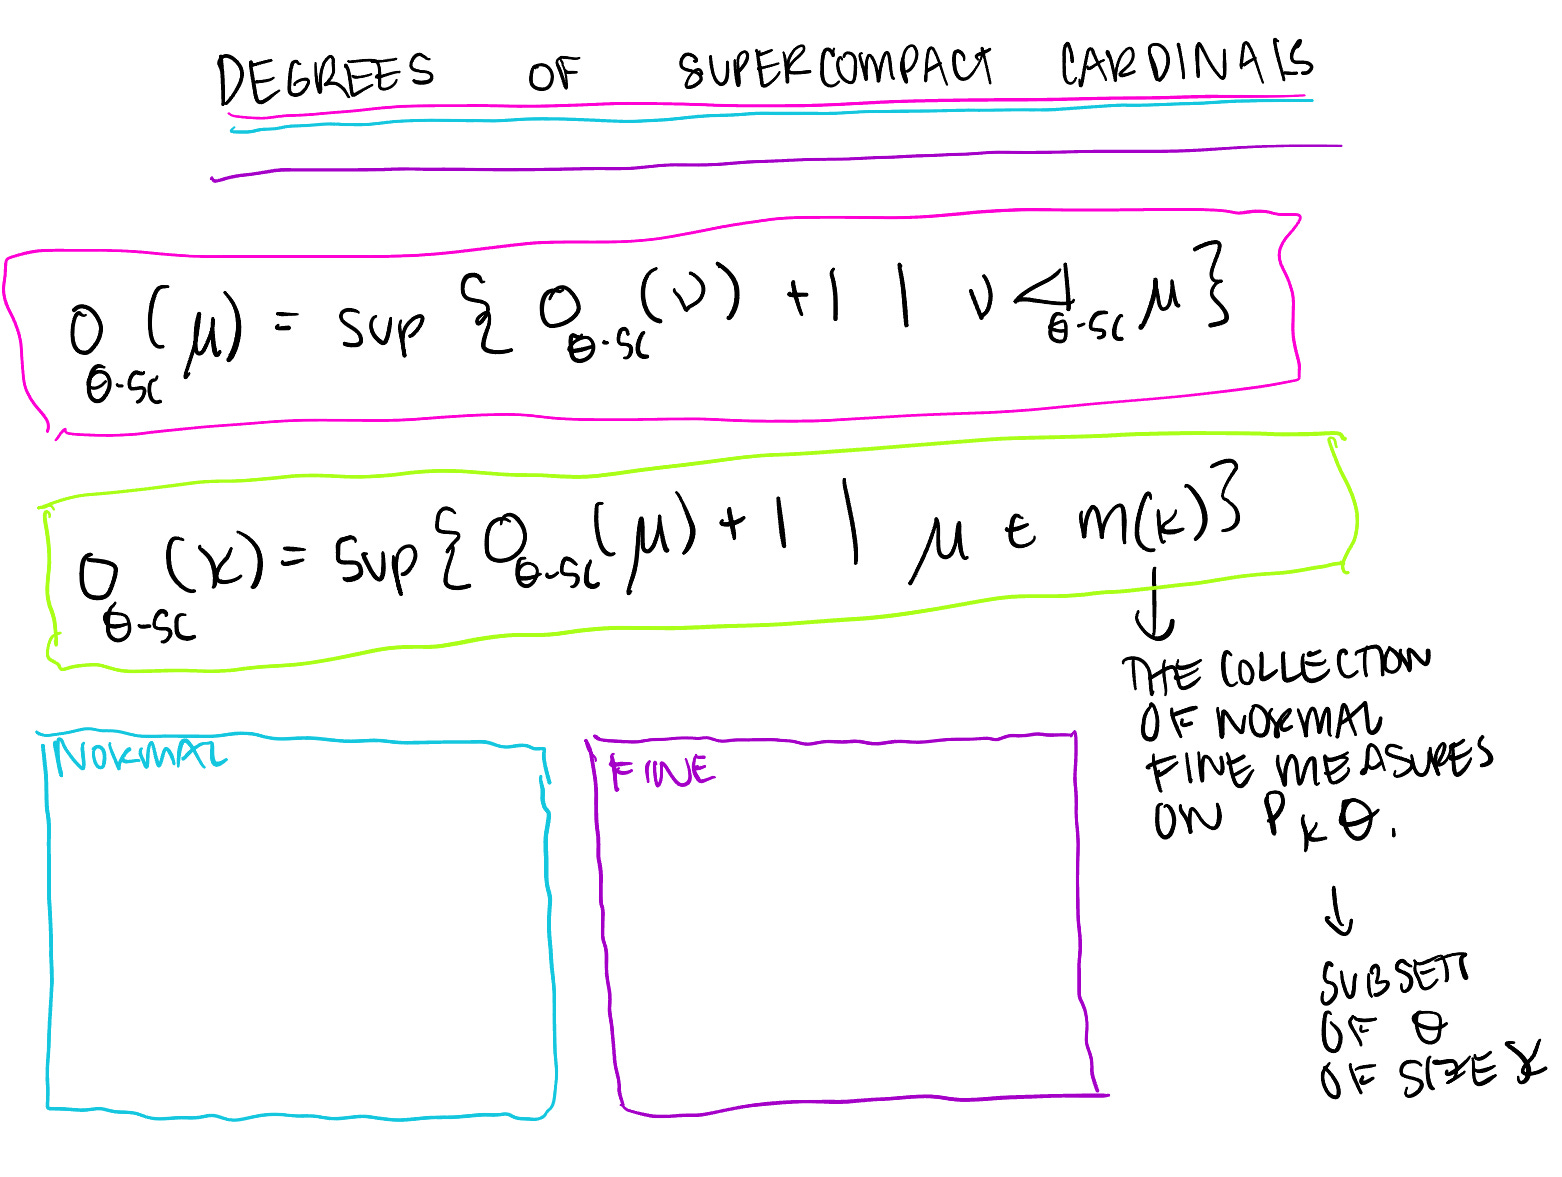 DEGREES OF SUPERCOMPACT CARDINALS
O_θ-SC (μ) = sup { O_θ-SC (ν) + 1 | ν ◁_θ-SC μ }
O_θ-SC (κ) = sup { O_θ-SC (μ) + 1 | μ ∈ m(κ) }
THE COLLECTION
OF NORMAL
FINE MEASURES
ON P_κ θ.
SUBSETS
OF θ
OF SIZE κ
NORMAL
FINE